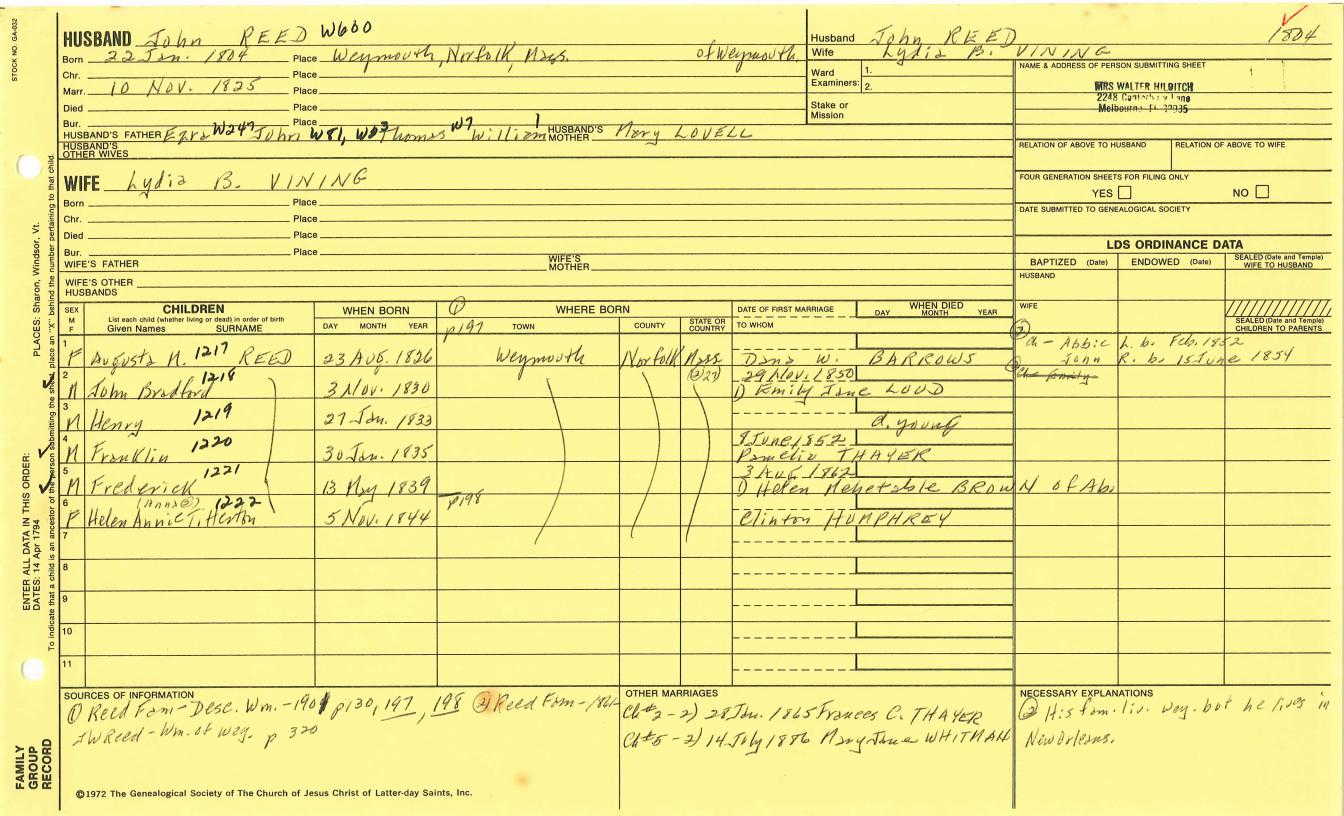 STOCK NO. GA-032
HUSBAND John REED W600
Born 22 Jan. 1804 Place Weymouth, Norfolk, Mass. of Weymouth
Chr. Place
Marr. 10 Nov. 1825 Place
Died Place
Bur. Place
HUSBAND'S FATHER Ezra W247 John W81, W03 Thomas W7 William 1 HUSBAND'S MOTHER Mary LOVELL
HUSBAND'S OTHER WIVES
WIFE Lydia B. VINING
Born Place
Chr. Place
Died Place
Bur. Place
WIFE'S FATHER WIFE'S MOTHER
WIFE'S OTHER HUSBANDS
Husband John REED 1804
Wife Lydia B. VINING
Ward Examiners: 1.
2.
Stake or Mission
NAME & ADDRESS OF PERSON SUBMITTING SHEET
MRS WALTER HILDITCH
2248 Lane
Melbourne
RELATION OF ABOVE TO HUSBAND RELATION OF ABOVE TO WIFE
FOUR GENERATION SHEETS FOR FILING ONLY
YES NO
DATE SUBMITTED TO GENEALOGICAL SOCIETY
LDS ORDINANCE DATA
BAPTIZED (Date) ENDOWED (Date) SEALED (Date and Temple) WIFE TO HUSBAND
HUSBAND
WIFE
SEALED (Date and Temple) CHILDREN TO PARENTS
SEX M F CHILDREN List each child (whether living or dead) in order of birth Given Names SURNAME
WHEN BORN DAY MONTH YEAR
① p197 WHERE BORN TOWN COUNTY STATE OR COUNTRY
DATE OF FIRST MARRIAGE TO WHOM
WHEN DIED DAY MONTH YEAR
1 F Augusta M. 1217 REED 23 Aug. 1826 Weymouth Norfolk Mass Dana W. BARROWS
② ch - Abbie L. b. Feb. 1852
John R. b. 15 June 1854
2 M John Bradford 1218 3 Nov. 1830 29 Nov. 1850 1) Emily Jane LOUD
3 M Henry 1219 27 Jan. 1833 d. young
4 M Franklin 1220 30 Jan. 1835 8 June 1852 Pamelia THAYER
5 M Frederick 1221 13 May 1839 3 Aug. 1862 1) Helen Mehetable BROWN of Ab.
6 F (Anna②) 1222 Helen Annie Titterton 5 Nov. 1844 p198 Clinton HUMPHREY
7
8
9
10
11
SOURCES OF INFORMATION
① Reed Fam - Desc. Wm. - 1901 p130, 197, 198 ② Reed Fam - 1861
JW Reed - Wm. of Wey. p 320
OTHER MARRIAGES
Ch #2 - 2) 28 Jan. 1865 Frances C. THAYER
Ch #5 - 2) 14 July 1886 Mary Jane WHITMAN
NECESSARY EXPLANATIONS
② His fam. liv. Wey. but he lives in
New Orleans.
©1972 The Genealogical Society of The Church of Jesus Christ of Latter-day Saints, Inc.
FAMILY GROUP RECORD
ENTER ALL DATA IN THIS ORDER:
DATES: 14 Apr 1794
PLACES: Sharon, Windsor, Vt.
To indicate that a child is an ancestor of the person submitting the sheet, place an "X" behind the number pertaining to that child.